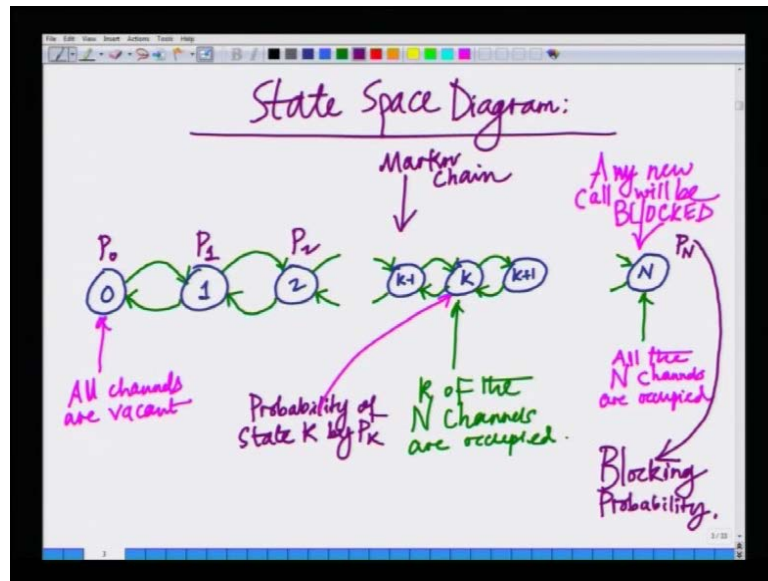 File Edit View Insert Actions Tools Help
State Space Diagram:
Markov
Chain
Any new
call will be
BLOCKED
P0 P1 P2 PN
0 1 2 k-1 k k+1 N
All channels
are vacant
Probability of
state K by PK
K of the
N Channels
are occupied.
All the
N Channels
are occupied
Blocking
Probability.
3